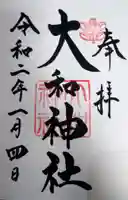 奉拝
大和神社
令和二年一月四日